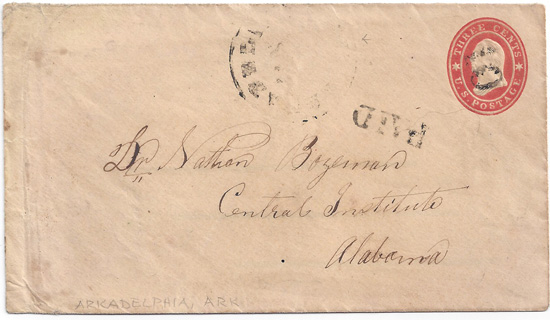 THREE CENTS
U.S. POSTAGE
PAID
Dr Nathan Bozeman
Central Institute
Alabama
ARKADELPHIA, ARK